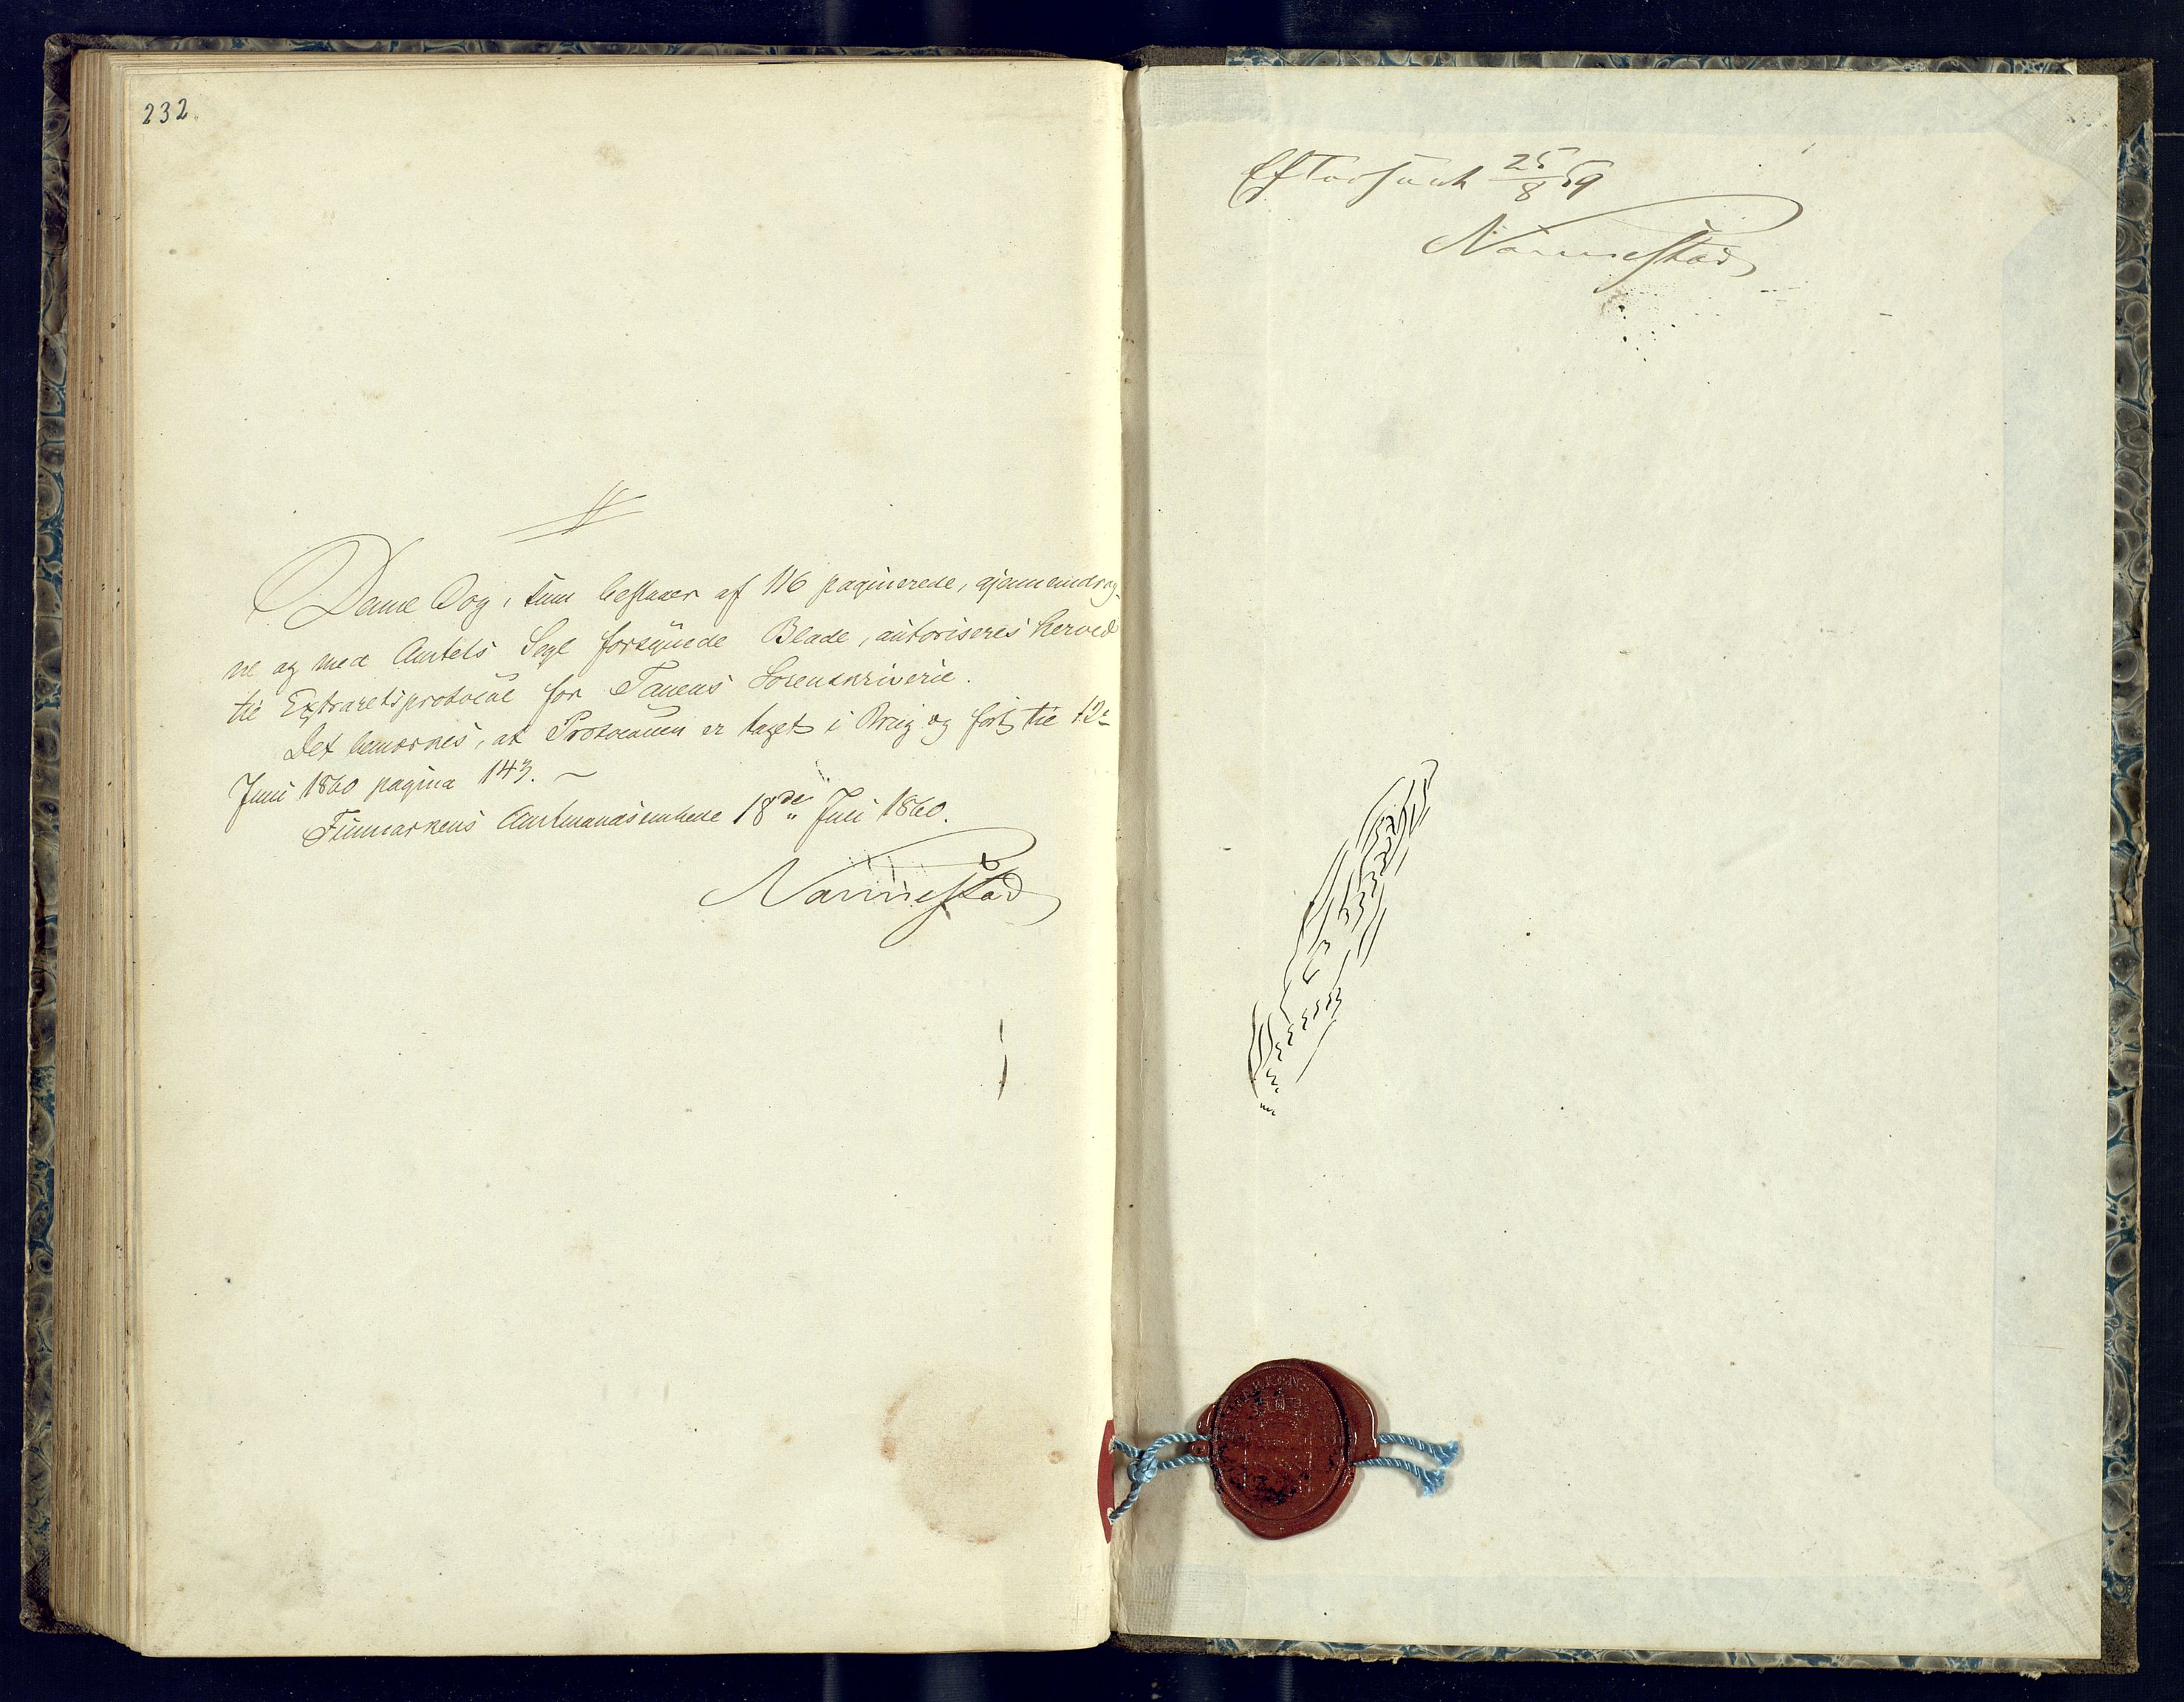 232
Denne Bog, som bestaaer af 116 paginerede, gjennemdrag-
ne og med Amtets Segl forsynede Blade, autoriseres herved
til Extraretsprotocol for Tanens Sorenskriverie.
Det bemærkes, at Protocollen er taget i Brug og ført til 12te
Juni 1860 pagina 143.
Finmarkens Amtmandsembede 18de Juli 1860.
Nannestad
Efterseet 25/8 59
Nannestad